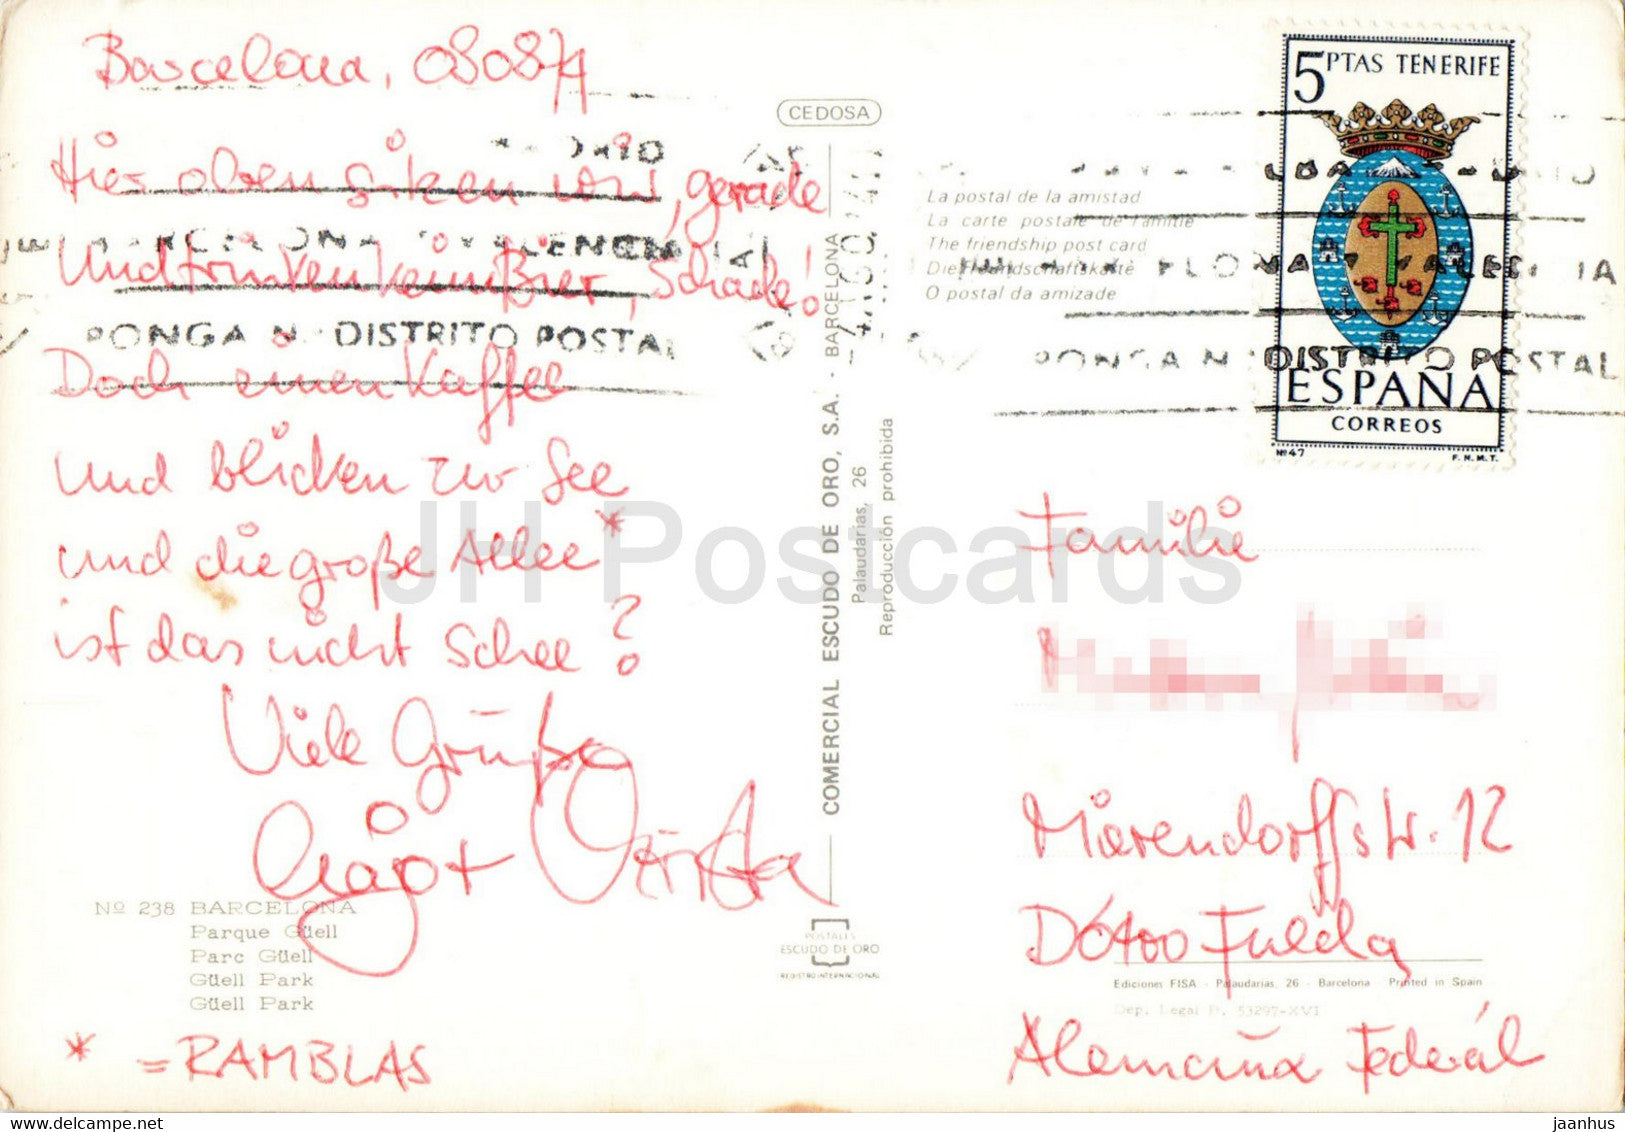 Barcelona, 080874
Hier oben sitzen wir, gerade
Und trinken kein Bier, Schade!
Doch einen Kaffee
und blicken zur See
und die große Allee*
ist das nicht Schee?
Viele Grüße
No 238 BARCELONA
Parque Güell
Parc Güell
Güell Park
Güell Park
* = RAMBLAS
CEDOSA
COMERCIAL ESCUDO DE ORO, S.A. · BARCELONA
Palaudarias, 26
Reproducción prohibida
POSTALES
ESCUDO DE ORO
REGISTRO INTERNACIONAL
BARCELONA VALENCIA
PONGA N.º DISTRITO POSTAL
La postal de la amistad
La carte postale de l'amitié
The friendship post card
Die Freundschaftskarte
O postal da amizade
5 PTAS TENERIFE
ESPAÑA
CORREOS
Nº 47 F.N.M.T.
PONGA N.º DISTRITO POSTAL
Familie
Marendorffstr. 12
D6400 Fulda
Ediciones FISA - Palaudarias, 26 - Barcelona - Printed in Spain
Dep. Legal B. 53297-XVI
Alemaña Federál
JH Postcards
delcampe.net
jaanhus